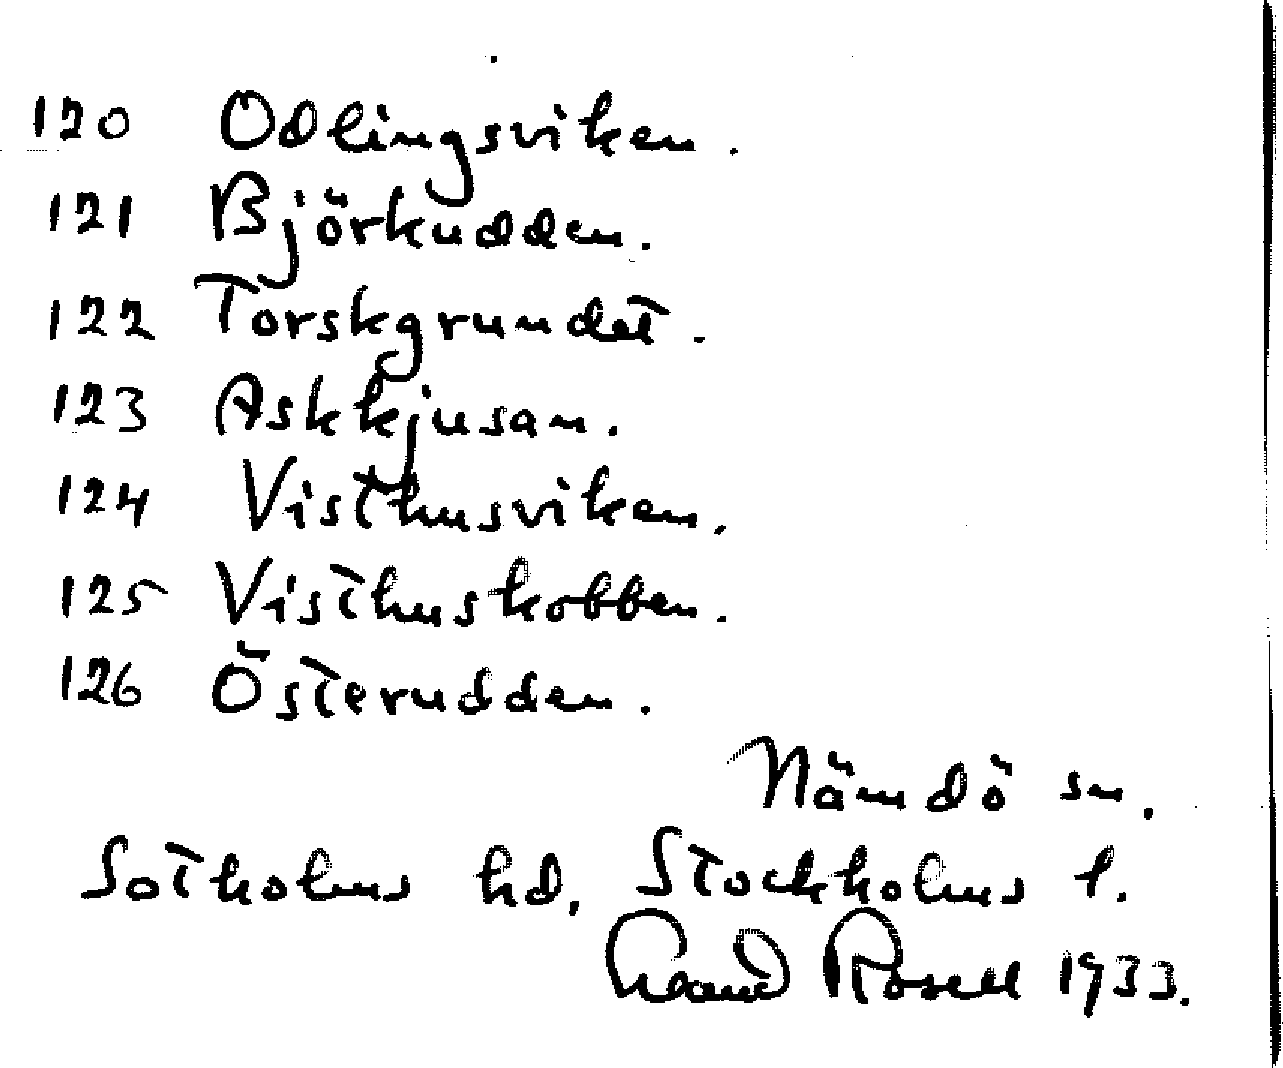 120 Odlingsviken.
121 Björkudden.
122 Torskgrundet.
123 Askkjusan.
124 Visthusviken.
125 Visthuskobben.
126 Österudden.
Nämdö sn.
Sotholms hd. Stockholms l.
Rosell 1933.